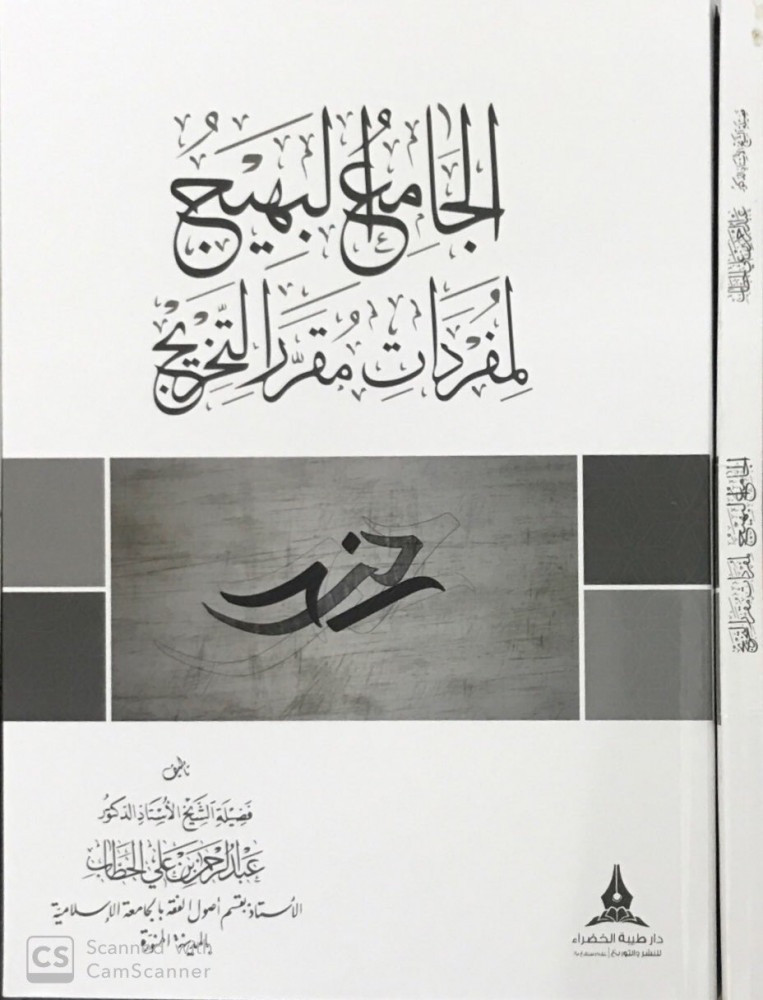 الجَامِعُ البَهِيجُ
لِمُفْرَدَاتِ مُقَرَّرِ التَّخْرِيْجِ
تأليف
فَضِيلَة الشَّيْخ الأُسْتَاذ الدكتُور
عَبْدُ الرَّحْمَن بْن عَلِي الحَطَّاب
الأستاذ بقسم أصول الفقه بالجامعة الإسلامية
بالمدينة المنورة
دار طيبة الخضراء
للنشر والتوزيع
CS Scanned with
CamScanner
فضيلة الشيخ الأستاذ الدكتور
عبد الرحمن بن علي الحطاب
الجامع البهيج لمفردات مقرر التخريج